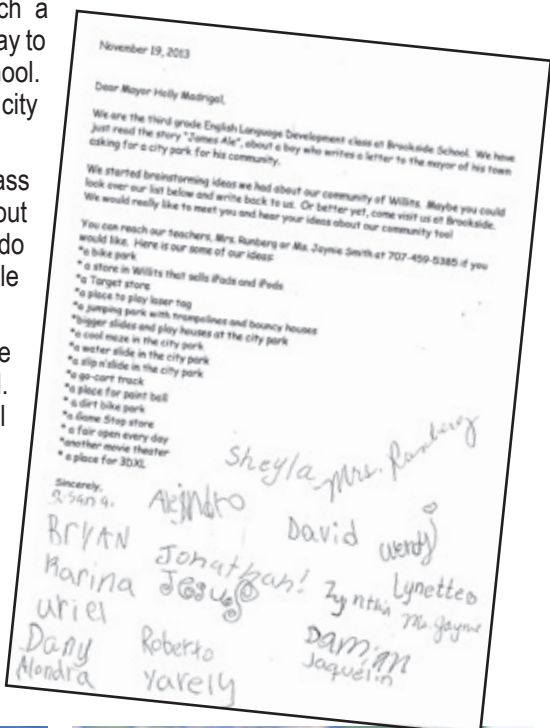 ch a
ay to
ool.
city
ass
out
do
le
e
l.
l
November 19, 2013
Dear Mayor Holly Madrigal,
We are the third grade English Language Development class at Brookside School. We have
just read the story "James Ale", about a boy who writes a letter to the mayor of his town
asking for a city park for his community.
We started brainstorming ideas we had about our community of Willits. Maybe you could
look over our list below and write back to us. Or better yet, come visit us at Brookside.
We would really like to meet you and hear your ideas about our community too!
You can reach our teachers, Mrs. Runberg or Ms. Jaynie Smith at 707-459-5385 if you
would like. Here is our some of our ideas:
*a bike park
* a store in Willits that sells iPads and iPods
*a Target store
*a place to play laser tag
*a jumping park with trampolines and bouncy houses
*bigger slides and play houses at the city park
*a cool maze in the city park
*a water slide in the city park
*a slip n'slide in the city park
*a go-cart track
*a place for paint ball
* a dirt bike park
*a Game Stop store
* a fair open every day
*another movie theater
* a place for 3DXL
Sheyla Mrs. Runberg
Sincerely,
Alejndro
David Wendy
BRYAN
Jonathan!
Lynette
Karina
Jesus
Zynthia
Ms. Jaynie
uriel
Damian
Dany
Roberto
Jaquelin
Alondra
Yarely